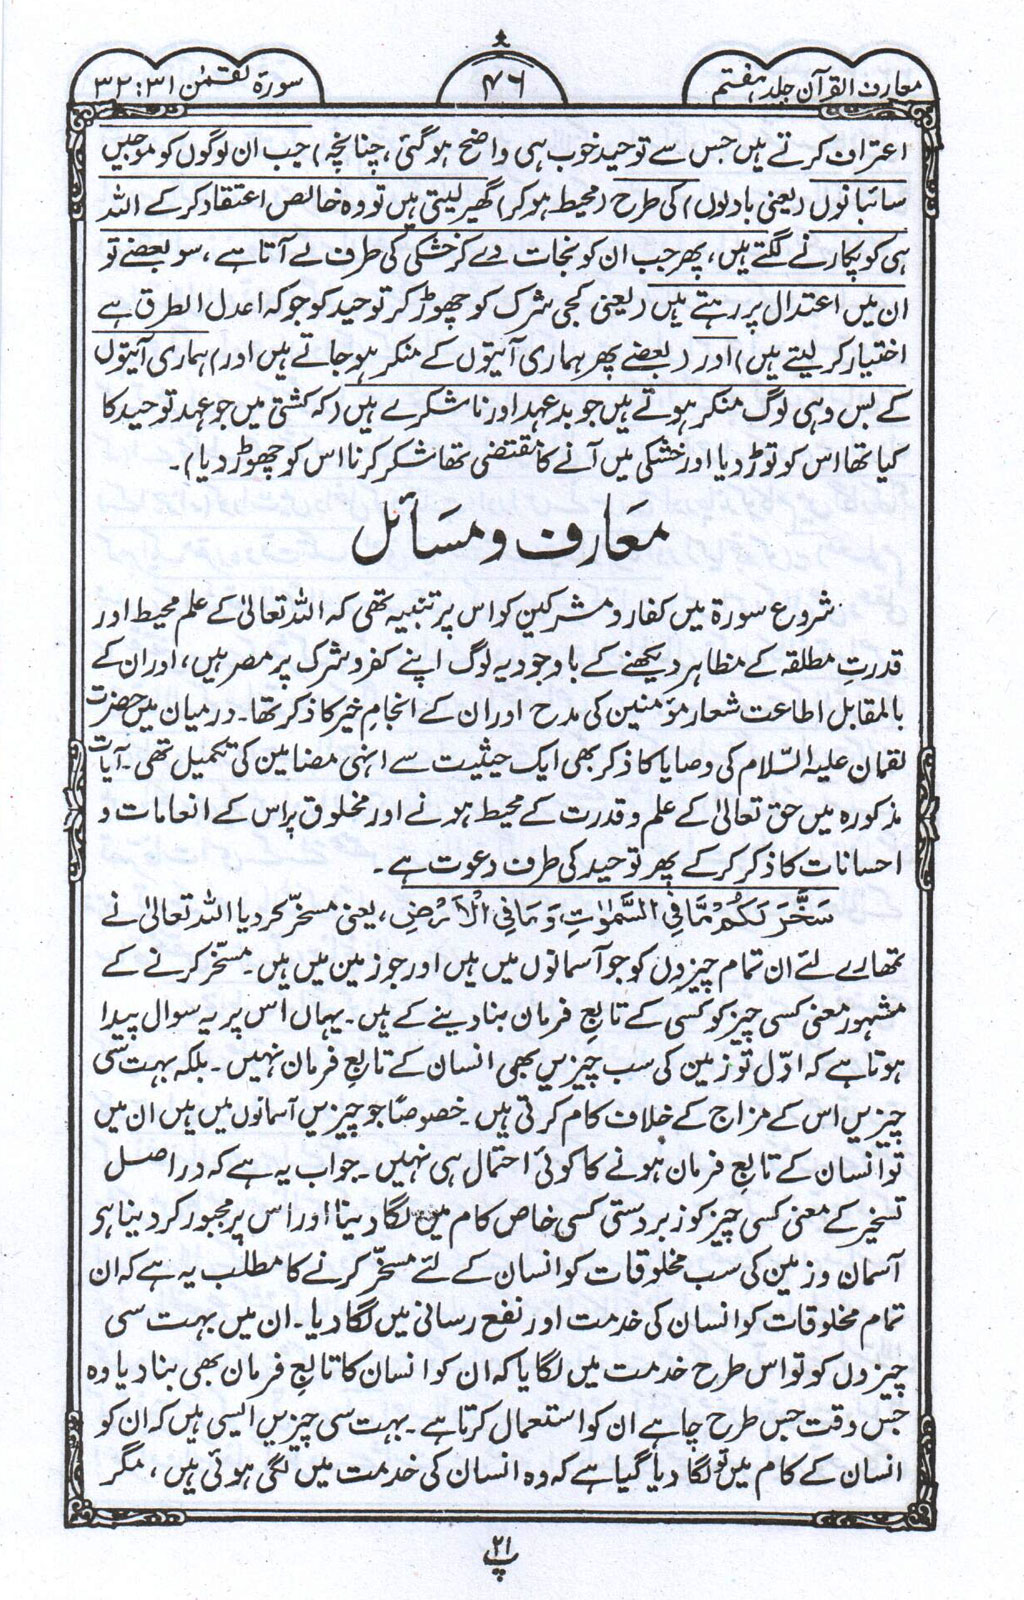 معارف القرآن جلد ہفتم
۴۶
سورۃ لقمٰن ۳۱ : ۳۲
اعتراف کرتے ہیں جس سے توحید خوب ہی واضح ہوگئی، چنانچہ) جب ان لوگوں کو موجیں
سائبانوں (یعنی بادلوں) کی طرح (محیط ہوکر) گھیر لیتی ہیں تو وہ خالص اعتقاد کرکے اللہ
ہی کو پکارنے لگتے ہیں، پھر جب ان کو نجات دے کر خشکی کی طرف لے آتا ہے، سو بعضے تو
ان میں اعتدال پر رہتے ہیں (یعنی کجی شرک کو چھوڑ کر توحید کو جو کہ اعدل الطرق ہے
اختیار کر لیتے ہیں) اور (بعضے پھر ہماری آیتوں کے منکر ہوجاتے ہیں اور) ہماری آیتوں
کے بس وہی لوگ منکر ہوتے ہیں جو بدعہد اور ناشکرے ہیں (کہ کشتی میں جو عہد توحید کا
کیا تھا اس کو توڑ دیا اور خشکی میں آنے کا مقتضی تھا شکر کرنا اس کو چھوڑ دیا)۔
معارف و مسائل
شروع سورۃ میں کفار و مشرکین کو اس پر تنبیہ تھی کہ اللہ تعالیٰ کے علم محیط اور
قدرتِ مطلقہ کے مظاہر دیکھنے کے باوجود یہ لوگ اپنے کفر و شرک پر مصر ہیں، اور ان کے
بالمقابل اطاعت شعار مؤمنین کی مدح اور ان کے انجامِ خیر کا ذکر تھا۔ درمیان میں حضرت
لقمان علیہ السّلام کی وصایا کا ذکر بھی ایک حیثیت سے انہی مضامین کی تکمیل تھی۔ آیات
مذکورہ میں حق تعالیٰ کے علم و قدرت کے محیط ہونے اور مخلوق پر اس کے انعامات و
احسانات کا ذکر کرکے پھر توحید کی طرف دعوت ہے۔
سَخَّرَ لَكُمْ مَّا فِي السَّمٰوٰتِ وَمَا فِي الْاَرْضِ، یعنی مسخّر کردیا اللہ تعالیٰ نے
تمھارے لئے ان تمام چیزوں کو جو آسمانوں میں ہیں اور جو زمین میں ہیں۔ مسخّر کرنے کے
مشہور معنی کسی چیز کو کسی کے تابع فرمان بنا دینے کے ہیں۔ یہاں اس پر یہ سوال پیدا
ہوتا ہے کہ اوّل تو زمین کی سب چیزیں بھی انسان کے تابع فرمان نہیں۔ بلکہ بہت سی
چیزیں اس کے مزاج کے خلاف کام کرتی ہیں۔ خصوصًا جو چیزیں آسمانوں میں ہیں ان میں
تو انسان کے تابع فرمان ہونے کا کوئی احتمال ہی نہیں۔ جواب یہ ہے کہ دراصل
تسخیر کے معنی کسی چیز کو زبردستی کسی خاص کام میں لگا دینا اور اس پر مجبور کر دینا ہی
آسمان و زمین کی سب مخلوقات کو انسان کے لئے مسخّر کرنے کا مطلب یہ ہے کہ ان
تمام مخلوقات کو انسان کی خدمت اور نفع رسانی میں لگا دیا۔ ان میں بہت سی
چیزوں کو تو اس طرح خدمت میں لگایا کہ ان کو انسان کا تابع فرمان بھی بنا دیا وہ
جس وقت جس طرح چاہے ان کو استعمال کرتا ہے۔ بہت سی چیزیں ایسی ہیں کہ ان کو
انسان کے کام میں تو لگا دیا گیا ہے کہ وہ انسان کی خدمت میں لگی ہوئی ہیں، مگر
پ ۲۱